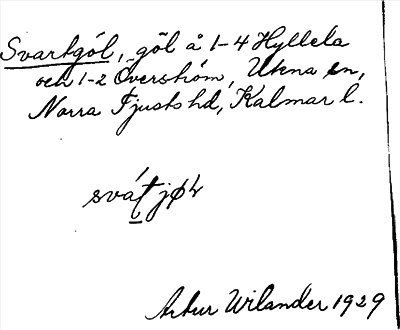 Svartgöl, göl å 1-4 Hyllela
och 1-2 Överström, Ukna sn,
Norra Tjusts hd, Kalmar l.
Artur Wilander 1929